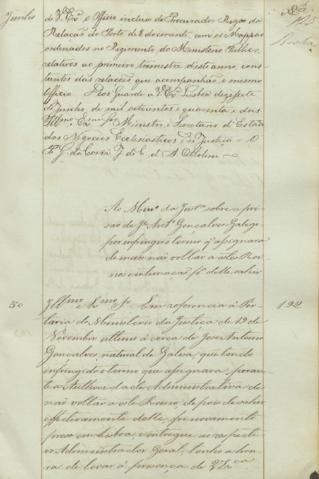 Junho
de V. Exª o Officio incluso do Procurador Regio da
Relação do Porto de 8 do corrente, com os Mappas
ordenados no Regimento do Ministerio Publico,
relativos ao primeiro trimestre deste anno, cons-
tantes das relações que acompanhão o mesmo
Officio. Deos Guarde a V. Exª Lisboa dezesete
de Junho de mil oitocentos e quarenta e dous
Illmo Exmo Snr Ministro e Secretario d'Estado
dos Negocios Ecclesiasticos e da Justiça = O
Ao Minº da Justª sobre a pri-
são de Jé Antº Gonçalves Galego
por infringir o termo q' assignara
de mais não voltar a este Rei-
no
50
192
Illmo e Exmo Sr Em referencia á Por-
taria do Ministerio da Justiça de 19 de
Novembro ultimo ácerca de José Antonio
Gonçalves natural de Galiza, que tendo
infringido o termo que assignara peran-
te a Authoridade Administrativa de
não voltar a este Reino, depois de sahir
effectivamente delle, foi novamente
preso em Lisboa, e entregue ao respecti-
vo Administrador Geral, tenho a hon-
ra de levar á presença de V. Exca